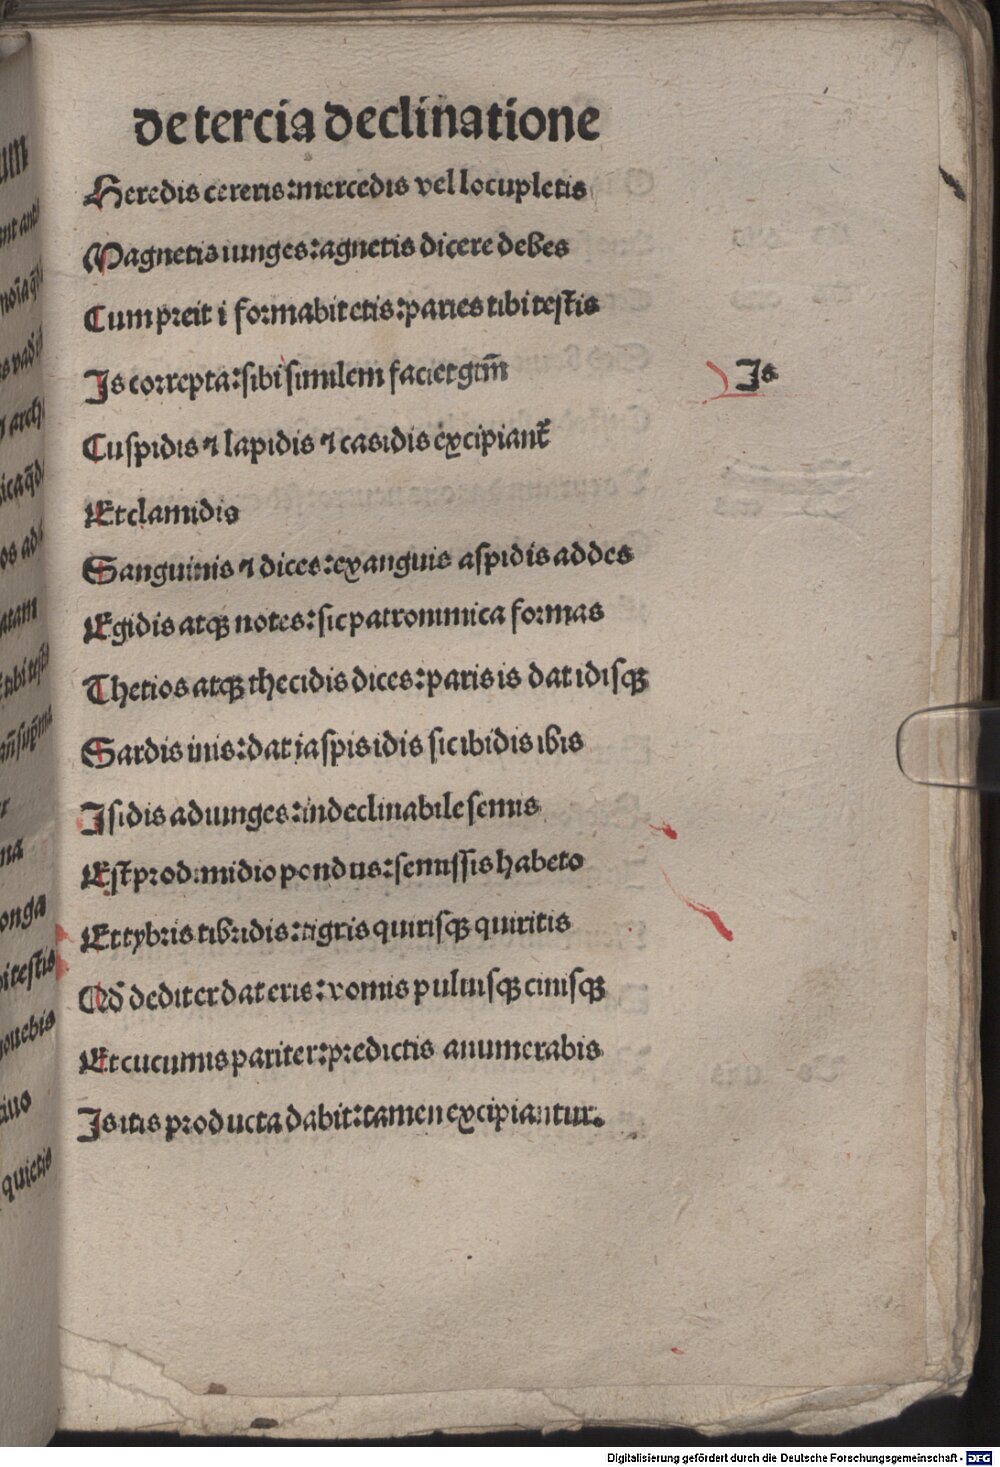 de tercia declinatione
Heredis cereris:mercedis vel locupletis
Magnetis iunges:agnetis dicere debes
Cum preit i formabit etis:paries tibi testis
Is correpta:sibi similem faciet gtm̄
Is
Cuspidis ⁊ lapidis ⁊ casidis excipiant᷑
Et clamidis
Sanguinis ⁊ dices:exanguis aspidis addes
Egidis atqꝫ notes:sic patronimica formas
Thetios atqꝫ thecidis dices:paris is dat idisqꝫ
Sardis inis:dat iaspis idis sic ibidis ibis
Isidis adiunges:indeclinabile semis
Est pro dimidio pondus:semissis habeto
Et tybris tibridis:tigris quirisqꝫ quiritis
Qd̄ dedit er dat eris:vomis puluisqꝫ cinisqꝫ
Et cucumis pariter:predictis anumerabis
Is itis producta dabit:tamen excipiantur.
Digitalisierung gefördert durch die Deutsche Forschungsgemeinschaft - DFG